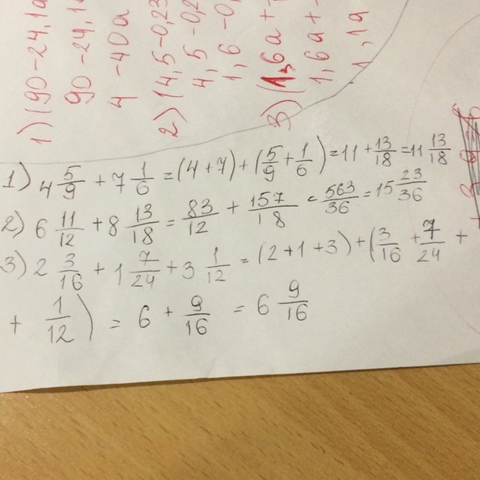 1) (90-24,1a
90-24,1a
4-40a
2) (14,5-0,23
4,5-0,2
1,6-0,
3) (1,6a+
1,6a+
1,1a
1) 4 5/9 + 7 1/6 = (4+7) + (5/9 + 1/6) = 11 + 13/18 = 11 13/18
2) 6 11/12 + 8 13/18 = 83/12 + 157/18 = 563/36 = 15 23/36
3) 2 3/16 + 1 7/24 + 3 1/12 = (2+1+3) + (3/16 + 7/24 +
+ 1/12) = 6 + 9/16 = 6 9/16